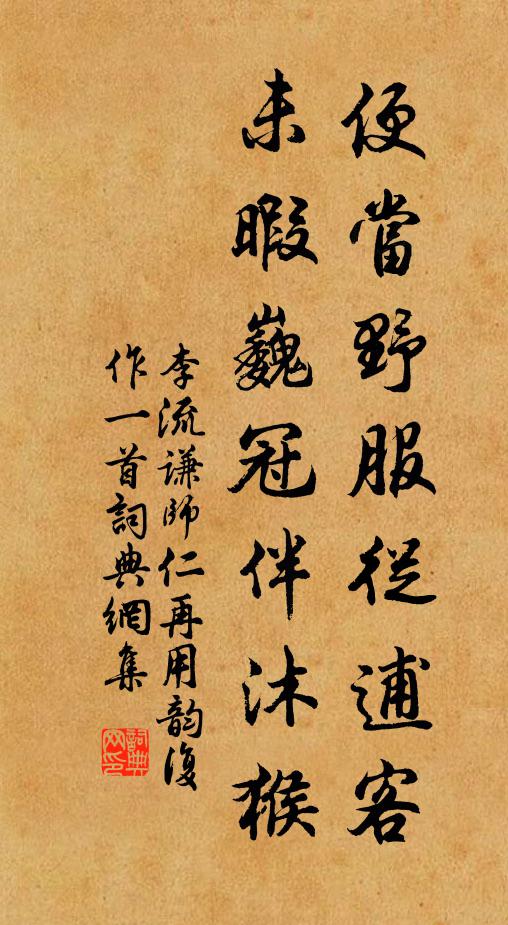 便當野服從逋客
未暇巍冠伴沐猴
李流謙師仁再用韵復
作一首詞典網集
詞典
网印